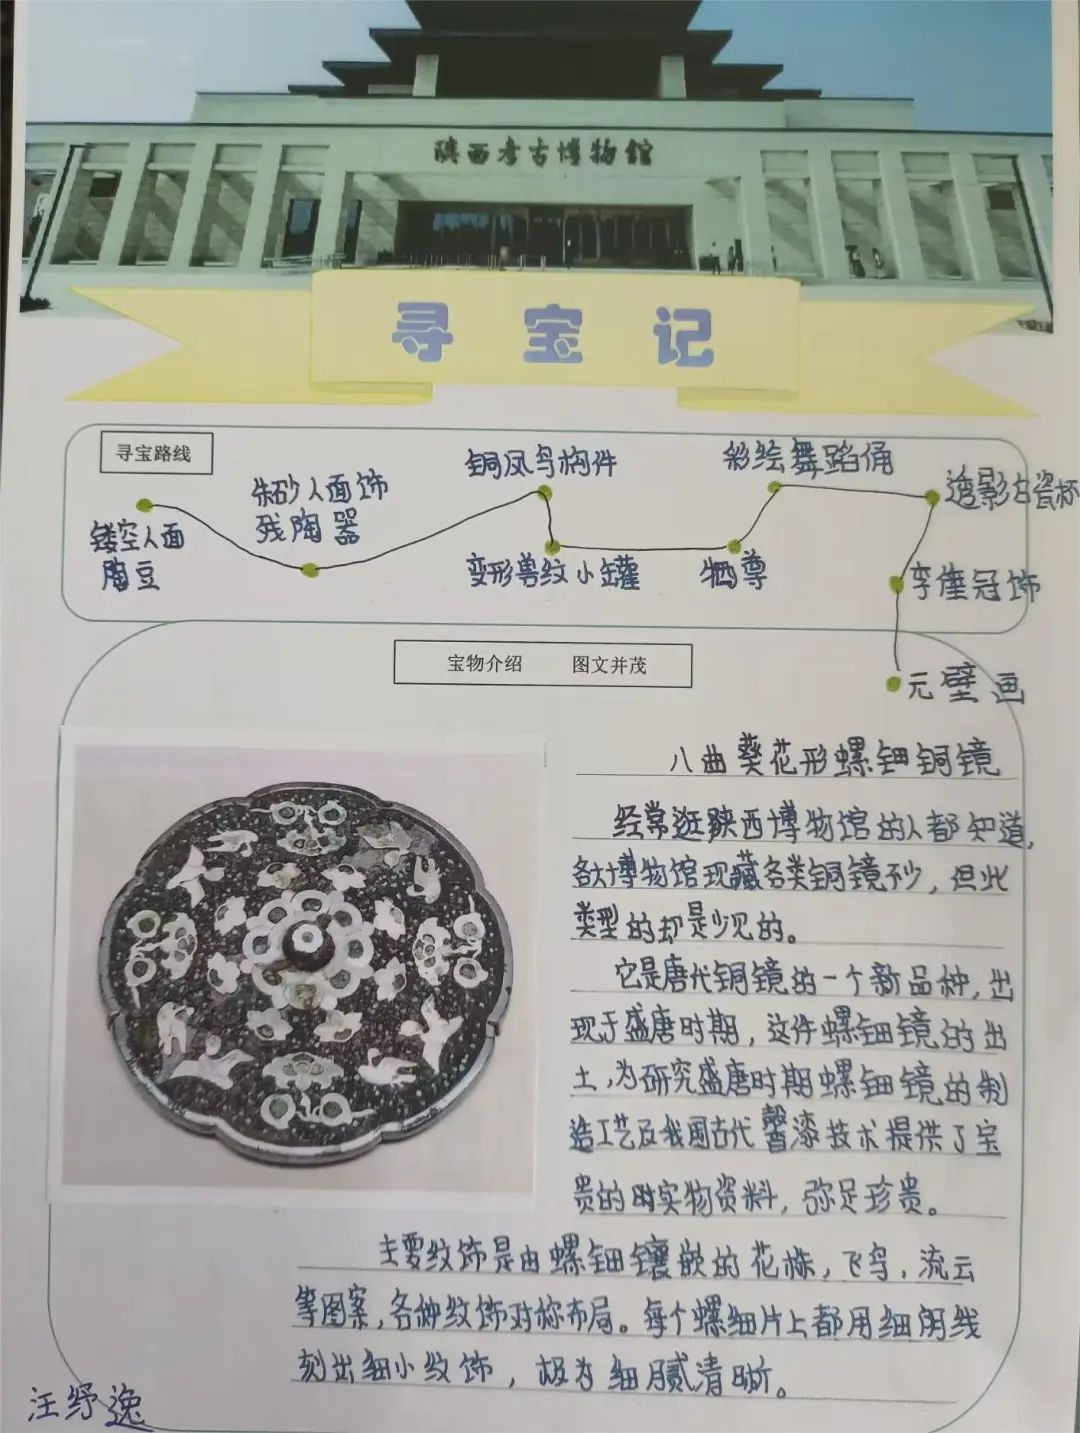 陕西考古博物館
寻宝记
寻宝路线
镂空人面
陶豆
朱砂人面饰
残陶器
铜凤鸟构件
变形兽纹小罐
牺尊
彩绘舞蹈俑
透影白瓷杯
李倕冠饰
元壁画
宝物介绍 图文并茂
八曲葵花形螺钿铜镜
经常逛陕西博物馆的人都知道,
各大博物馆现藏各类铜镜不少，但此
类型的却是少见的。
它是唐代铜镜的一个新品种，出
现于盛唐时期，这件螺钿镜的出
土，为研究盛唐时期螺钿镜的制
造工艺及我国古代漆技术提供了宝
贵的实物资料，弥足珍贵。
主要纹饰是由螺钿镶嵌的花栋，飞鸟，流云
等图案，各种纹饰对称布局。每个螺细片上都用细阴线
刻出细小纹饰，极为细腻清晰。
汪纾逸